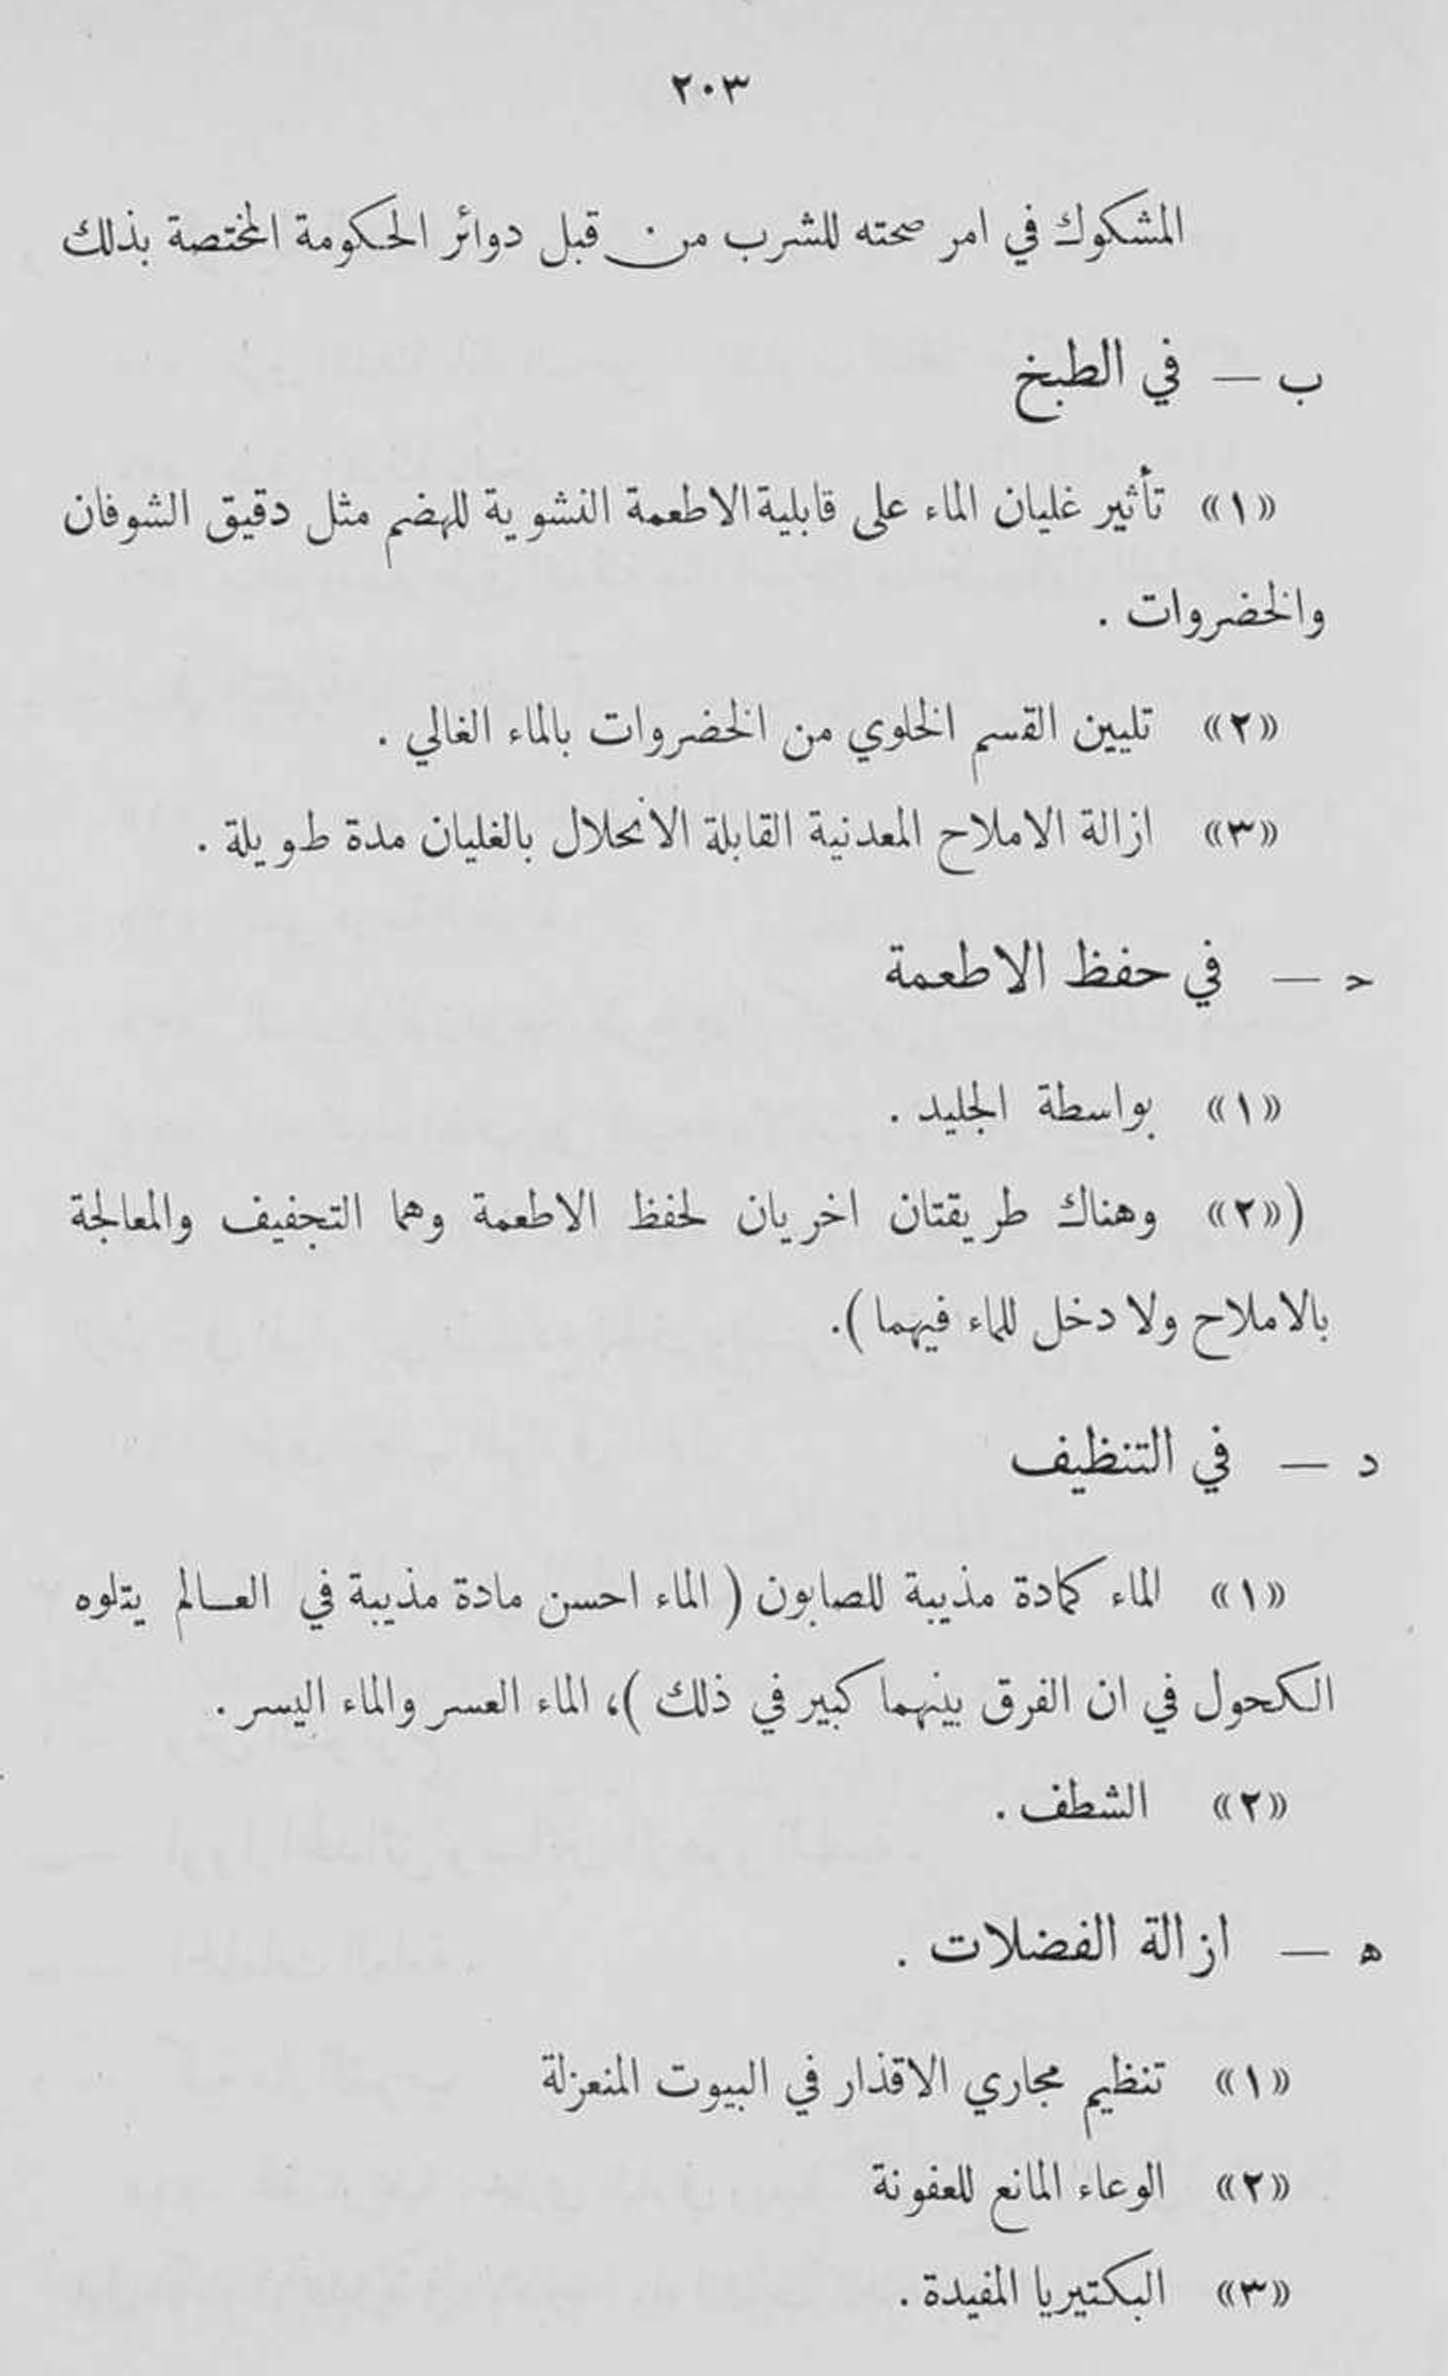 ٢٠٣
المشكوك في امر صحته للشرب من قبل دوائر الحكومة المختصة بذلك
ب — في الطبخ
«١» تأثير غليان الماء على قابلية الاطعمة النشوية للهضم مثل دقيق الشوفان
والخضروات .
«٢» تليين القسم الخلوي من الخضروات بالماء الغالي .
«٣» ازالة الاملاح المعدنية القابلة الانحلال بالغليان مدة طويلة .
ح — في حفظ الاطعمة
«١» بواسطة الجليد .
(«٢» وهناك طريقتان اخريان لحفظ الاطعمة وهما التجفيف والمعالجة
بالاملاح ولا دخل للماء فيهما ).
د — في التنظيف
«١» الماء كمادة مذيبة للصابون ( الماء احسن مادة مذيبة في العالم يتلوه
الكحول في ان الفرق بينهما كبير في ذلك )، الماء العسر والماء اليسر .
«٢» الشطف .
ه — ازالة الفضلات .
«١» تنظيم مجاري الاقذار في البيوت المنعزلة
«٢» الوعاء المانع للعفونة
«٣» البكتيريا المفيدة .